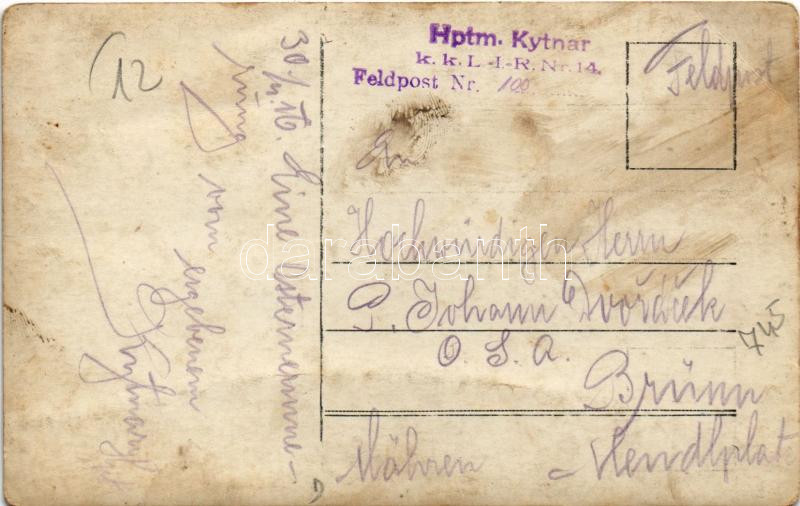 (12
Hptm. Kytnar
k. k. L.-I-R. Nr. 14.
Feldpost Nr. 100
Feldpost
Hochwürdigen Herrn
P. Johann Dvořáček
O. S. A.
Brünn
Mähren - Mendlplatz
745
30./4. 16. Eine Osternerinne-
rung
vom
ergebenem
Kytnar
darabanth.com